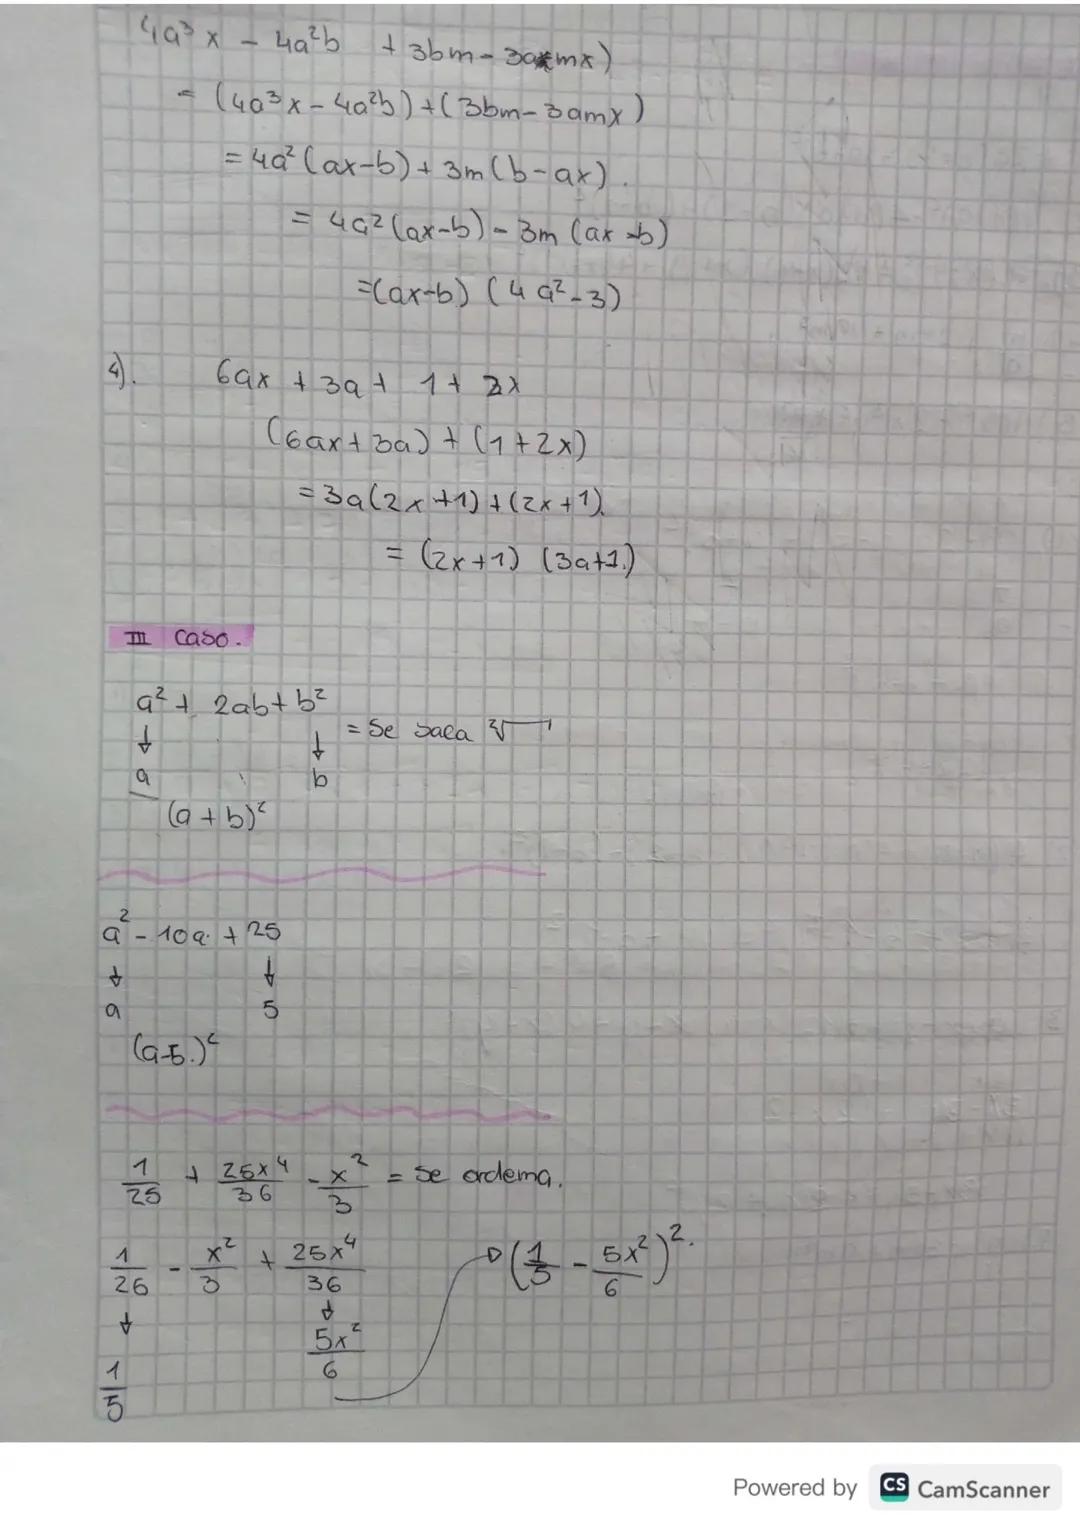 4a³x - 4a²b + 3bm - 3amx)
= (4a³x - 4a²b) + (3bm - 3amx)
= 4a² (ax-b) + 3m (b-ax).
= 4a² (ax-b) - 3m (ax-b)
= (ax-b) (4a²-3)
4). 6ax + 3a + 1 + 2x
(6ax + 3a) + (1 + 2x)
= 3a(2x+1) + (2x+1).
= (2x+1) (3a+1.)
III caso.
a² + 2ab + b²
↓ ↓ = Se saca ²√
a b
(a + b)²
a² - 10a + 25
↓ ↓
a 5
(a-5.)²
1/25 + 25x⁴/36 - x²/3 = se ordema.
1/26 - x²/3 + 25x⁴/36 → (1/5 - 5x²/6)².
↓ ↓
1/5 5x²/6
Powered by CS CamScanner